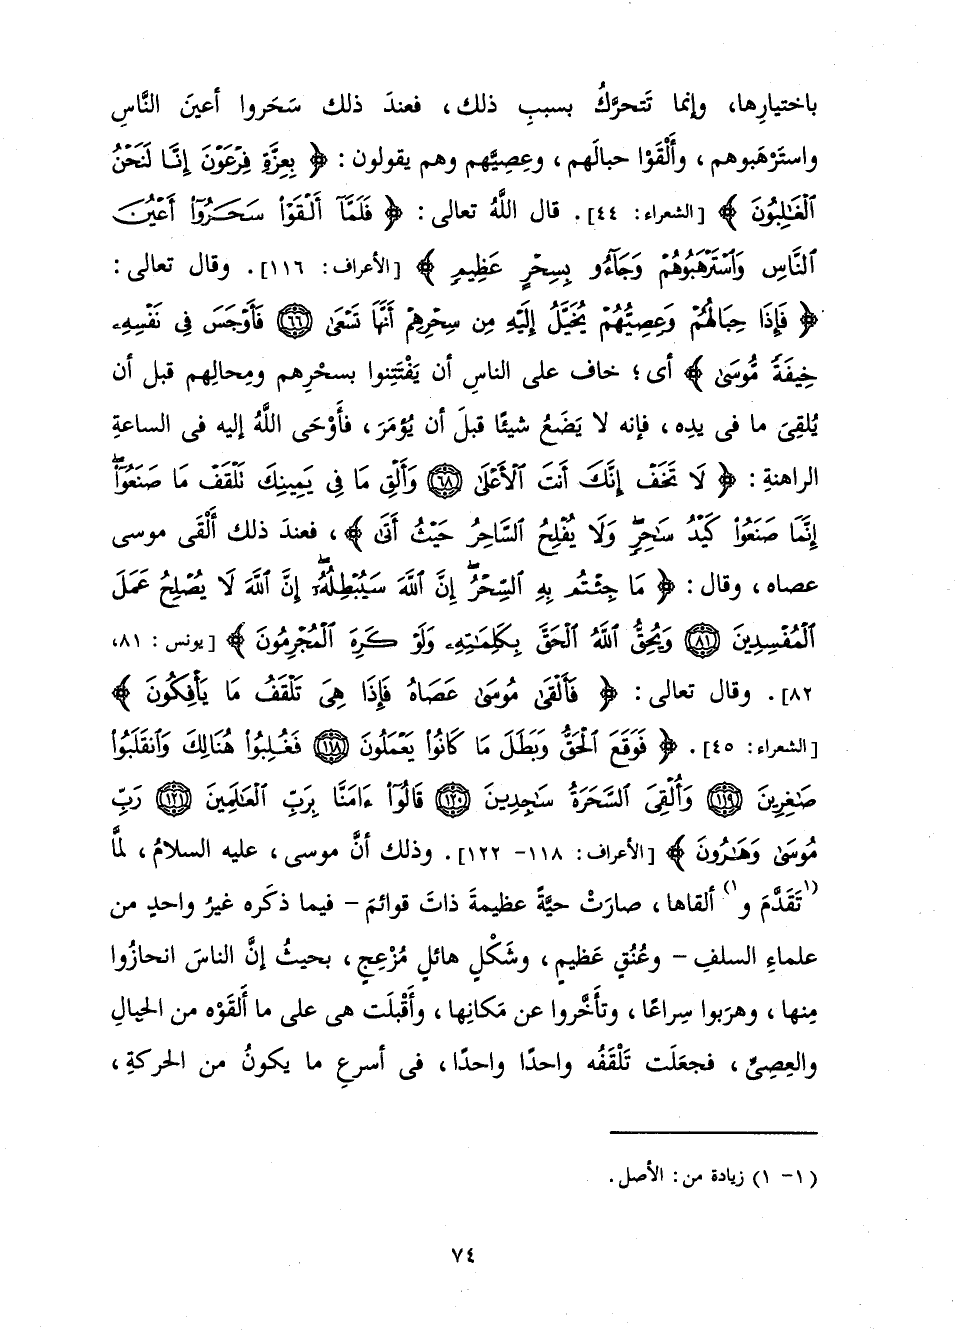 باختيارِها، وإنما تَتحرَّكُ بسببِ ذلك، فعندَ ذلك سَحَروا أعينَ النَّاسِ
واستَرْهَبوهم، وأَلْقَوْا حبالَهم، وعِصِيَّهم وهم يقولون: ﴿ بِعِزَّةِ فِرْعَوْنَ إِنَّا لَنَحْنُ
ٱلْغَـٰلِبُونَ ﴾ [الشعراء: ٤٤]. قال اللَّهُ تعالى: ﴿ فَلَمَّآ أَلْقَوْا۟ سَحَرُوٓا۟ أَعْيُنَ
ٱلنَّاسِ وَٱسْتَرْهَبُوهُمْ وَجَآءُو بِسِحْرٍ عَظِيمٍ ﴾ [الأعراف: ١١٦]. وقال تعالى:
﴿ فَإِذَا حِبَالُهُمْ وَعِصِيُّهُمْ يُخَيَّلُ إِلَيْهِ مِن سِحْرِهِمْ أَنَّهَا تَسْعَىٰ ٦٦ فَأَوْجَسَ فِى نَفْسِهِۦ
خِيفَةً مُّوسَىٰ ﴾ أى؛ خاف على الناسِ أن يَفْتَتِنوا بسحْرِهم ومِحالِهم قبل أن
يُلقِىَ ما فى يدِه، فإنه لا يَضَعُ شيئًا قبلَ أن يُؤمَرَ، فأَوْحَى اللَّهُ إليه فى الساعةِ
الراهنةِ: ﴿ لَا تَخَفْ إِنَّكَ أَنتَ ٱلْأَعْلَىٰ ٦٨ وَأَلْقِ مَا فِى يَمِينِكَ تَلْقَفْ مَا صَنَعُوٓا۟ۖ
إِنَّمَا صَنَعُوا۟ كَيْدُ سَـٰحِرٍۖ وَلَا يُفْلِحُ ٱلسَّاحِرُ حَيْثُ أَتَىٰ ﴾، فعندَ ذلك أَلْقَى موسى
عصاه، وقال: ﴿ مَا جِئْتُم بِهِ ٱلسِّحْرُۖ إِنَّ ٱللَّهَ سَيُبْطِلُهُۥٓۖ إِنَّ ٱللَّهَ لَا يُصْلِحُ عَمَلَ
ٱلْمُفْسِدِينَ ٨١ وَيُحِقُّ ٱللَّهُ ٱلْحَقَّ بِكَلِمَـٰتِهِۦ وَلَوْ كَرِهَ ٱلْمُجْرِمُونَ ﴾ [يونس: ٨١،
٨٢]. وقال تعالى: ﴿ فَأَلْقَىٰ مُوسَىٰ عَصَاهُ فَإِذَا هِىَ تَلْقَفُ مَا يَأْفِكُونَ ﴾
[الشعراء: ٤٥]. ﴿ فَوَقَعَ ٱلْحَقُّ وَبَطَلَ مَا كَانُوا۟ يَعْمَلُونَ ١١٨ فَغُلِبُوا۟ هُنَالِكَ وَٱنقَلَبُوا۟
صَـٰغِرِينَ ١١٩ وَأُلْقِىَ ٱلسَّحَرَةُ سَـٰجِدِينَ ١٢٠ قَالُوٓا۟ ءَامَنَّا بِرَبِّ ٱلْعَـٰلَمِينَ ١٢١ رَبِّ
مُوسَىٰ وَهَـٰرُونَ ﴾ [الأعراف: ١١٨- ١٢٢]. وذلك أنَّ موسى، عليه السلامُ، لمَّا
(١تَقَدَّمَ و١) ألقاها، صارَتْ حيَّةً عظيمةً ذاتَ قوائمَ - فيما ذكَره غيرُ واحدٍ من
علماءِ السلفِ - وعُنُقٍ عَظيمٍ، وشَكْلٍ هائلٍ مُزْعِجٍ، بحيثُ إنَّ الناسَ انحازُوا
مِنها، وهرَبوا سِراعًا، وتأَخَّروا عن مَكانِها، وأَقْبَلَت هى على ما أَلقَوْه من الحبالِ
والعِصِىِّ، فجعَلَت تَلْقَفُه واحدًا واحدًا، فى أسرعِ ما يكونُ من الحركةِ،
(١- ١) زيادة من: الأصل.
٧٤